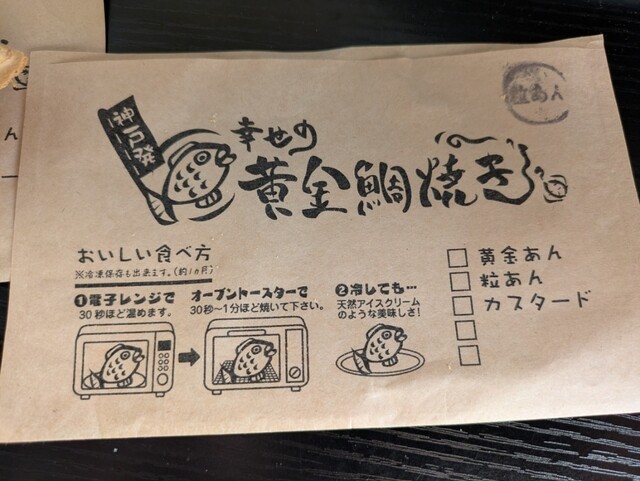 粒あん
神戸発
幸せの
黄金鯛焼き
おいしい食べ方
※冷凍保存も出来ます。(約1ヵ月)
❶電子レンジで
30秒ほど温めます。
オーブントースターで
30秒〜1分ほど焼いて下さい。
❷冷しても…
天然アイスクリーム
のような美味しさ!
□黄金あん
□粒あん
□カスタード
□
□
ん